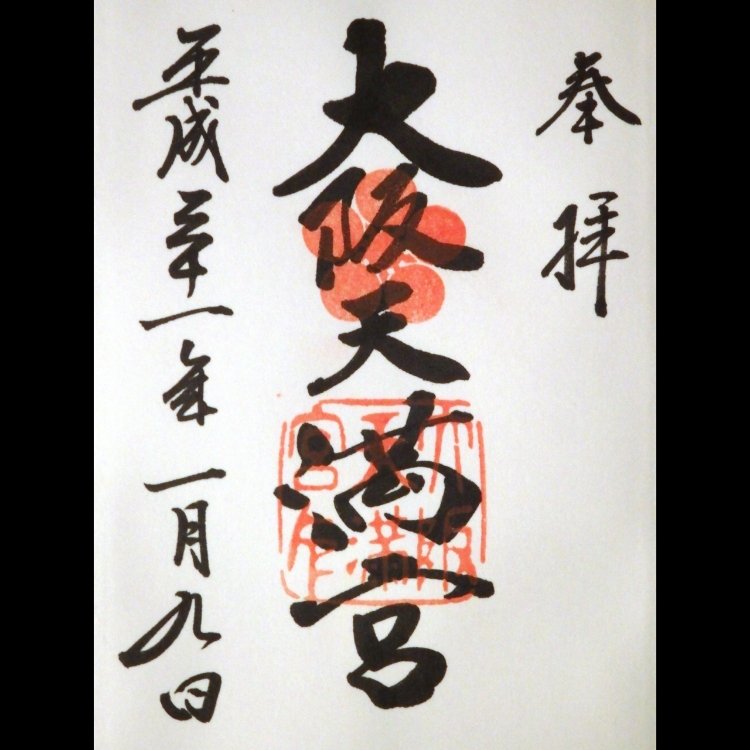 奉拝
大阪天満宮
大阪
天満
宮印
平成二十一年一月九日